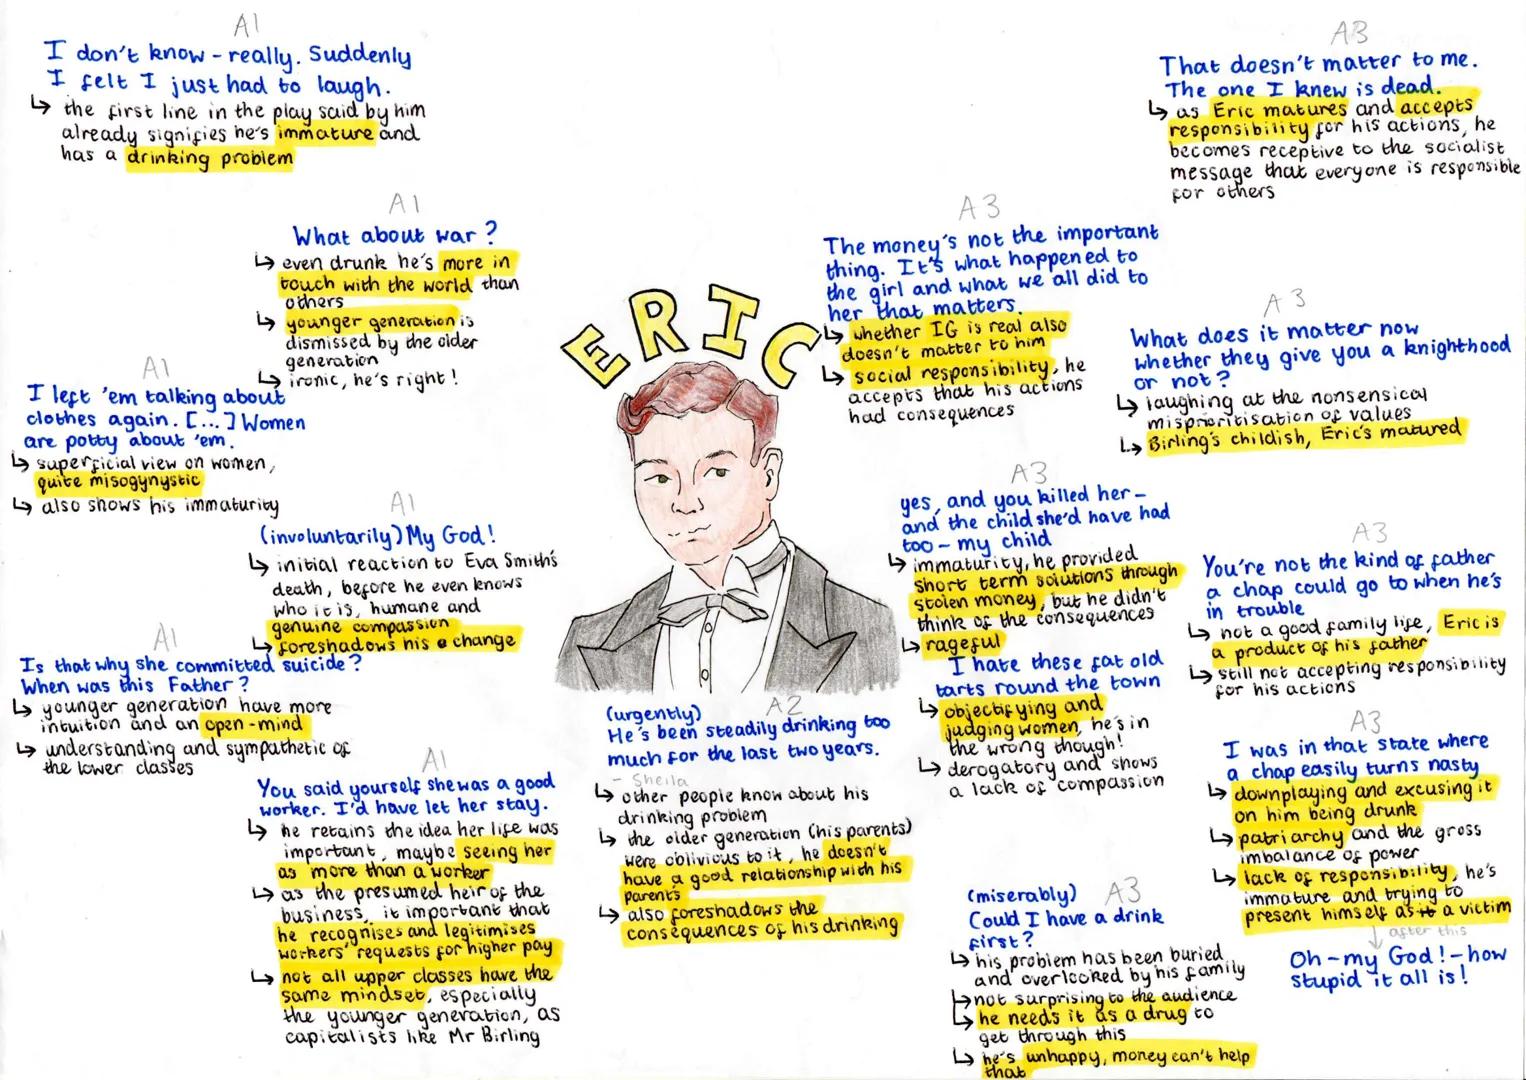 A1
I don't know - really. Suddenly
I felt I just had to laugh.
↳ the first line in the play said by him
already signifies he's immature and
has a drinking problem
A1
What about war?
↳ even drunk he's more in
touch with the world than
others
↳ younger generation is
dismissed by the older
generation
↳ ironic, he's right!
A1
I left 'em talking about
clothes again. [...] Women
are potty about 'em.
↳ superficial view on women,
quite misogynystic
↳ also shows his immaturity
A1
(involuntarily) My God!
↳ initial reaction to Eva Smith's
death, before he even knows
who it is, humane and
genuine compassion
↳ foreshadows his change
A1
Is that why she committed suicide?
When was this Father?
↳ younger generation have more
intuition and an open-mind
↳ understanding and sympathetic of
the lower classes
A1
You said yourself she was a good
worker. I'd have let her stay.
↳ he retains the idea her life was
important, maybe seeing her
as more than a worker
↳ as the presumed heir of the
business, it important that
he recognises and legitimises
workers' requests for higher pay
↳ not all upper classes have the
same mindset, especially
the younger generation, as
capitalists like Mr Birling
ERIC
A2
(urgently)
He's been steadily drinking too
much for the last two years.
- Sheila
↳ other people know about his
drinking problem
↳ the older generation (his parents)
were oblivious to it, he doesn't
have a good relationship with his
parents
↳ also foreshadows the
consequences of his drinking
A3
The money's not the important
thing. It's what happened to
the girl and what we all did to
her that matters.
↳ whether IG is real also
doesn't matter to him
↳ social responsibility, he
accepts that his actions
had consequences
A3
yes, and you killed her -
and the child she'd have had
too - my child
↳ immaturity, he provided
short term solutions through
stolen money, but he didn't
think of the consequences
↳ rageful
I hate these fat old
tarts round the town
↳ objectifying and
judging women, he's in
the wrong though!
↳ derogatory and shows
a lack of compassion
(miserably) A3
Could I have a drink
first?
↳ his problem has been buried
and overlooked by his family
↳ not surprising to the audience
↳ he needs it as a drug to
get through this
↳ he's unhappy, money can't help
that
A3
That doesn't matter to me.
The one I knew is dead.
↳ as Eric matures and accepts
responsibility for his actions, he
becomes receptive to the socialist
message that everyone is responsible
for others
A3
What does it matter now
whether they give you a knighthood
or not?
↳ laughing at the nonsensical
misprioritisation of values
↳ Birling's childish, Eric's matured
A3
You're not the kind of father
a chap could go to when he's
in trouble
↳ not a good family life, Eric is
a product of his father
↳ still not accepting responsibility
for his actions
A3
I was in that state where
a chap easily turns nasty
↳ downplaying and excusing it
on him being drunk
↳ patriarchy and the gross
imbalance of power
↳ lack of responsibility, he's
immature and trying to
present himself as a victim
↓ after this
Oh - my God! - how
stupid it all is!